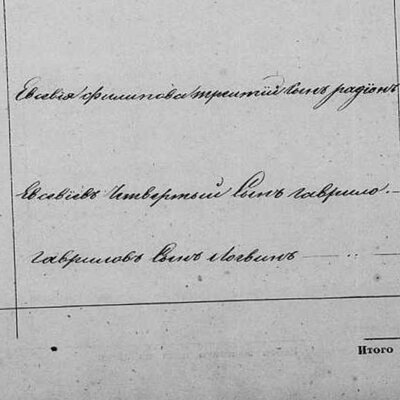 Евсевiя филипова третiй сынъ радiонъ
Евсевiевъ Четвертый Сынъ гаврило
гавриловъ Сынъ Логвинъ
Итого